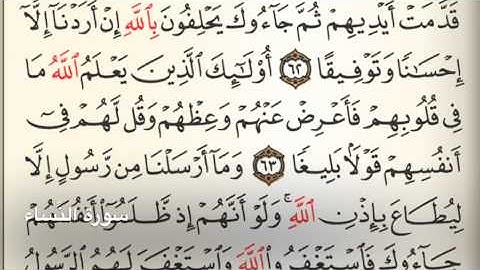 قَدَّمَتْ أَيْدِيهِمْ ثُمَّ جَآءُوكَ يَحْلِفُونَ بِٱللَّهِ إِنْ أَرَدْنَآ إِلَّآ
إِحْسَٰنًا وَتَوْفِيقًا ٦٢ أُو۟لَٰٓئِكَ ٱلَّذِينَ يَعْلَمُ ٱللَّهُ مَا
فِى قُلُوبِهِمْ فَأَعْرِضْ عَنْهُمْ وَعِظْهُمْ وَقُل لَّهُمْ فِىٓ
أَنفُسِهِمْ قَوْلًۢا بَلِيغًا ٦٣ وَمَآ أَرْسَلْنَا مِن رَّسُولٍ إِلَّا
لِيُطَاعَ بِإِذْنِ ٱللَّهِ ۚ وَلَوْ أَنَّهُمْ إِذ ظَّلَمُوٓا۟ أَنفُسَهُمْ
سورة النساء
جَآءُوكَ فَٱسْتَغْفَرُوا۟ ٱللَّهَ وَٱسْتَغْفَرَ لَهُمُ ٱلرَّسُولُ